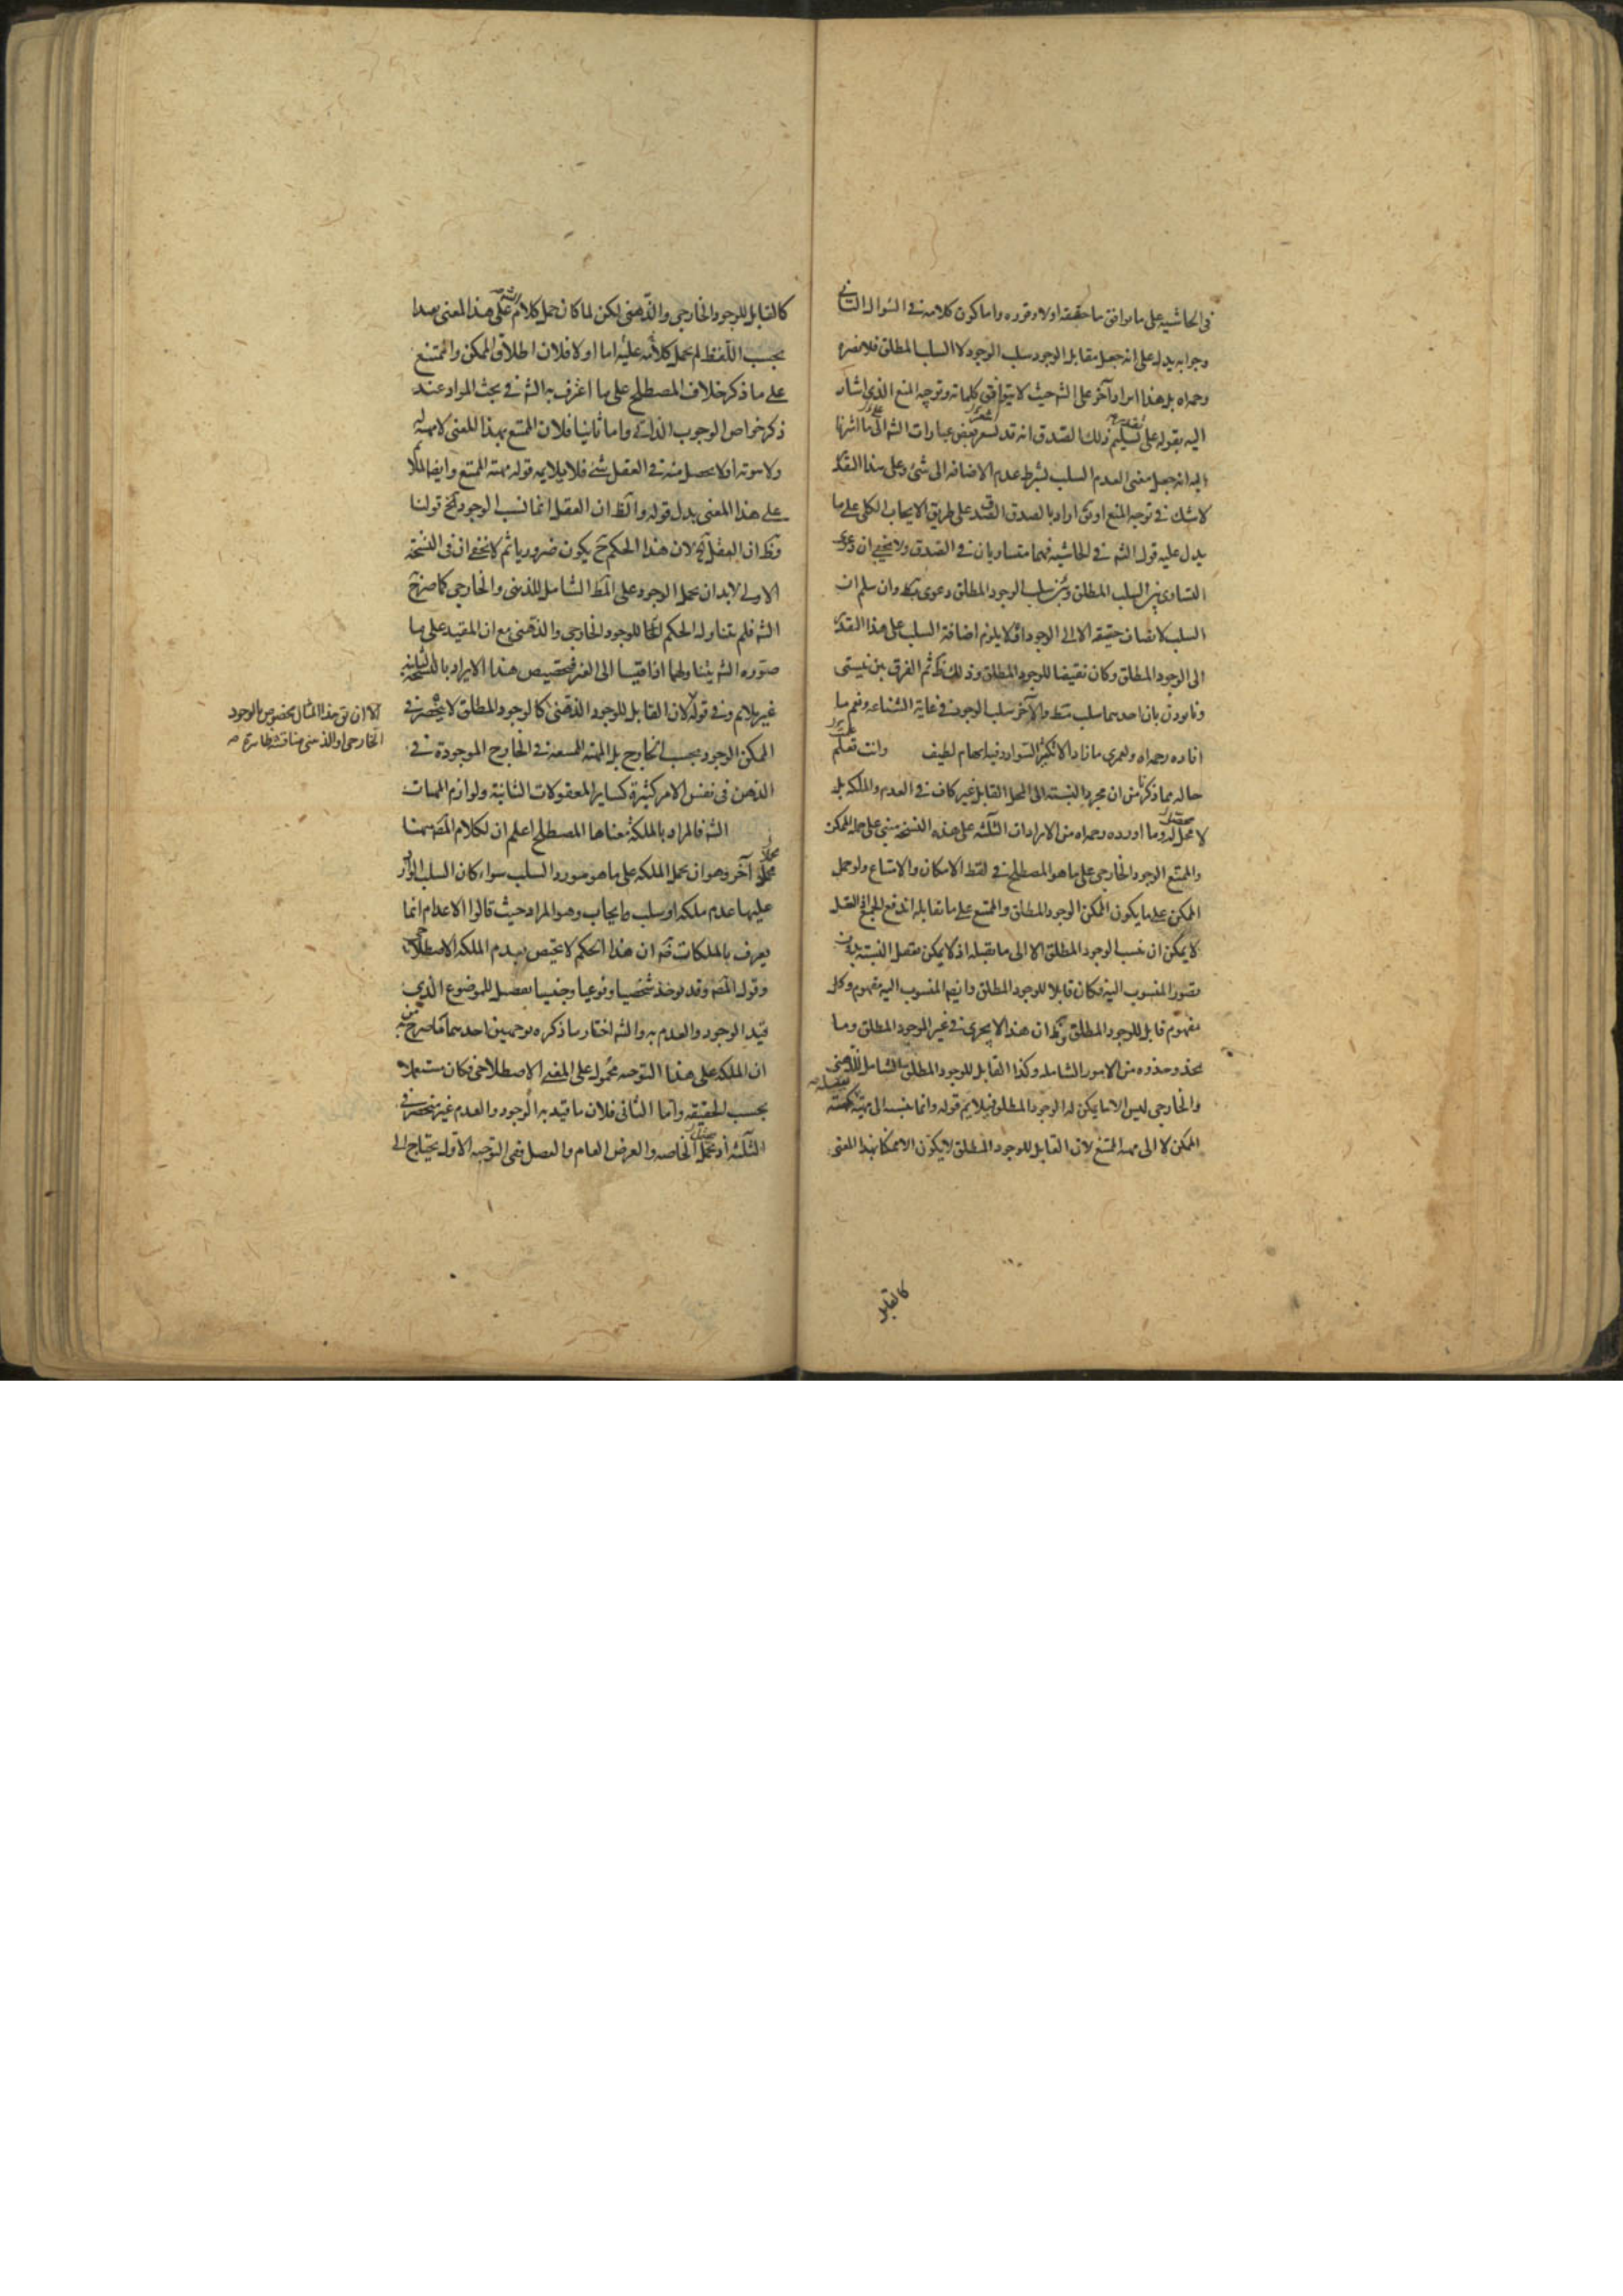 في الحاشية على ما يوافق ما حققه اولا وقرره واما كون كلامه في السؤال الثاني
وجوابه يدل على انه جعل مقابل الوجود سلب الوجود لا السلب المطلق فلا يضره
وجداه بل هذا ايراد آخر على الشه حيث لا يتوافق كلماته وتوجه المنع الذي اشار
اليه بقوله على تسليم ذلك الصدق انه قد بعض عبارات الشه الى ما اشرنا
اليه انه جعل معنى العدم السلب بشرط عدم الاضافة الى شئ وعلى هذا التقد
لا شك في توجه المنع او اراد بالصدق الصدق على طريق الايجاب الكلى على ما
يدل عليه قول الشه في الحاشية فهما متساويان في الصدق ولا يخفى ان دعوى
التساوى بين السلب المطلق وبين سلب الوجود المطلق دعوى وان سلم ان
السلب لا يضاف حقيقة الا الى الوجود اذ لا يلزم اضافة السلب على هذا التقد
الى الوجود المطلق وكان نقيضا للوجود المطلق وذلك ثم الفرق بين نيستى
ونابودن بان احدهما سلب فقط والآخر سلب الوجود في غاية الشناعة ونعم ما
افاده رحمه الله ولعمرى ما نادا الا وفيه ايهام لطيف وانت تعلم
حاله مما ذكرنا من ان مجرد النسبة الى المحل القابل غير كاف في العدم والملكة بل
لا وما اورده رحمه الله من الايرادات الثلثة على هذه النسخة مبنى على حمل الممكن
والممتنع الوجود الخارجى على ما هو المصطلح في لفظ الامكان والامتناع ولو حمل
الممكن على ما يكون الممكن الوجود المطلق والممتنع على ما تقابله اندفع العقل
لا يمكن ان ينسب الوجود المطلق الا الى ما يقبله اذ لا يمكن النسبة بدون
تصور المنسوب اليه فكان قابلا للوجود المطلق وايضا المنسوب اليه مفهوم وكل
مفهوم قابل للوجود المطلق ان هذا لا يجرى في غير الوجود المطلق وما
يحذو حذوه من الامور الشاملة وكذا القابل للوجود المطلق الشامل للذهنى
والخارجى ليس الا ما يمكن له الوجود المطلق فيلايم قوله وانما ينسبه الى مهية
الممكن لا الى مهية الممتنع لان القابل للوجود المطلق لا يكون الا ممكنا بهذا المعنى
كالقابل
كالقابل للوجود الخارجى والذهنى لكن لما كان حمل كلام الشه على هذا المعنى بعيدا
بحسب اللفظ لم يحمل كلامه عليه اما اولا فلان اطلاق الممكن والممتنع
على ما ذكر خلاف المصطلح على ما اعترف به الشه في بحث المواد عند
ذكر خواص الوجوب الذاتى واما ثانيا فلان الممتنع بهذا المعنى لا مهية له
ولا هوية اذ لا يحصل منه في العقل شئ فلا يلايمه قوله مهية الممتنع وايضا
على هذا المعنى يدل قوله والظ ان العقل انما نسب الوجود قولنا
وظ ان العقل لان هذا الحكم ح يكون ضروريا ثم لا يخفى ان في النسخة
الاولى لا بد ان يحمل الوجود على المط الشامل للذهنى والخارجى كما صرح
الشه فلم يتناوله الحكم للوجود الخارجى والذهنى مع ان المقيد على ما
صوره الشه يتناولهما اذا قيسا الى الغير فتخصيص هذا الايراد بالنسخة
غير ملايم وفي قوله لان القابل للوجود الذهنى كالوجود المطلق لا ينحصر في
الممكن الوجود بحسب الخارج بل المهية الممتنعة في الخارج الموجودة في
الذهن في نفس الامر كثيرة كساير المعقولات الثانية ولوازم المهيات
الشه فالمراد بالملكة معناها المصطلح اعلم ان لكلام المص ههنا
محملا آخر وهو ان يحمل الملكة على ما هو مورد السلب سواء كان السلب الوارد
عليها عدم ملكة او سلب وايجاب وهو المراد حيث قالوا الاعدام انما
يعرف بالملكات ان هذا الحكم لا يختص بعدم الملكة الاصطلاحى
وقول المص وقد يوخذ شخصيا ونوعيا وجنسيا تفصيل للموضوع الذي
قيد الوجود والعدم به والشه اختار ما ذكره لوجهين احدهما ما صرح به من
ان الملكة على هذا التوجيه محمول على المعنى الاصطلاحى فكان مستعملا
بحسب الحقيقة واما الثانى فلان ما قيد به الوجود والعدم غير منحصر في
الثلثة او الخاصة والعرض العام والفصل ففى التوجيه الاول يحتاج الى
الا ان يق هذا المثال مخصوص بالوجود
الخارجى او الذهنى